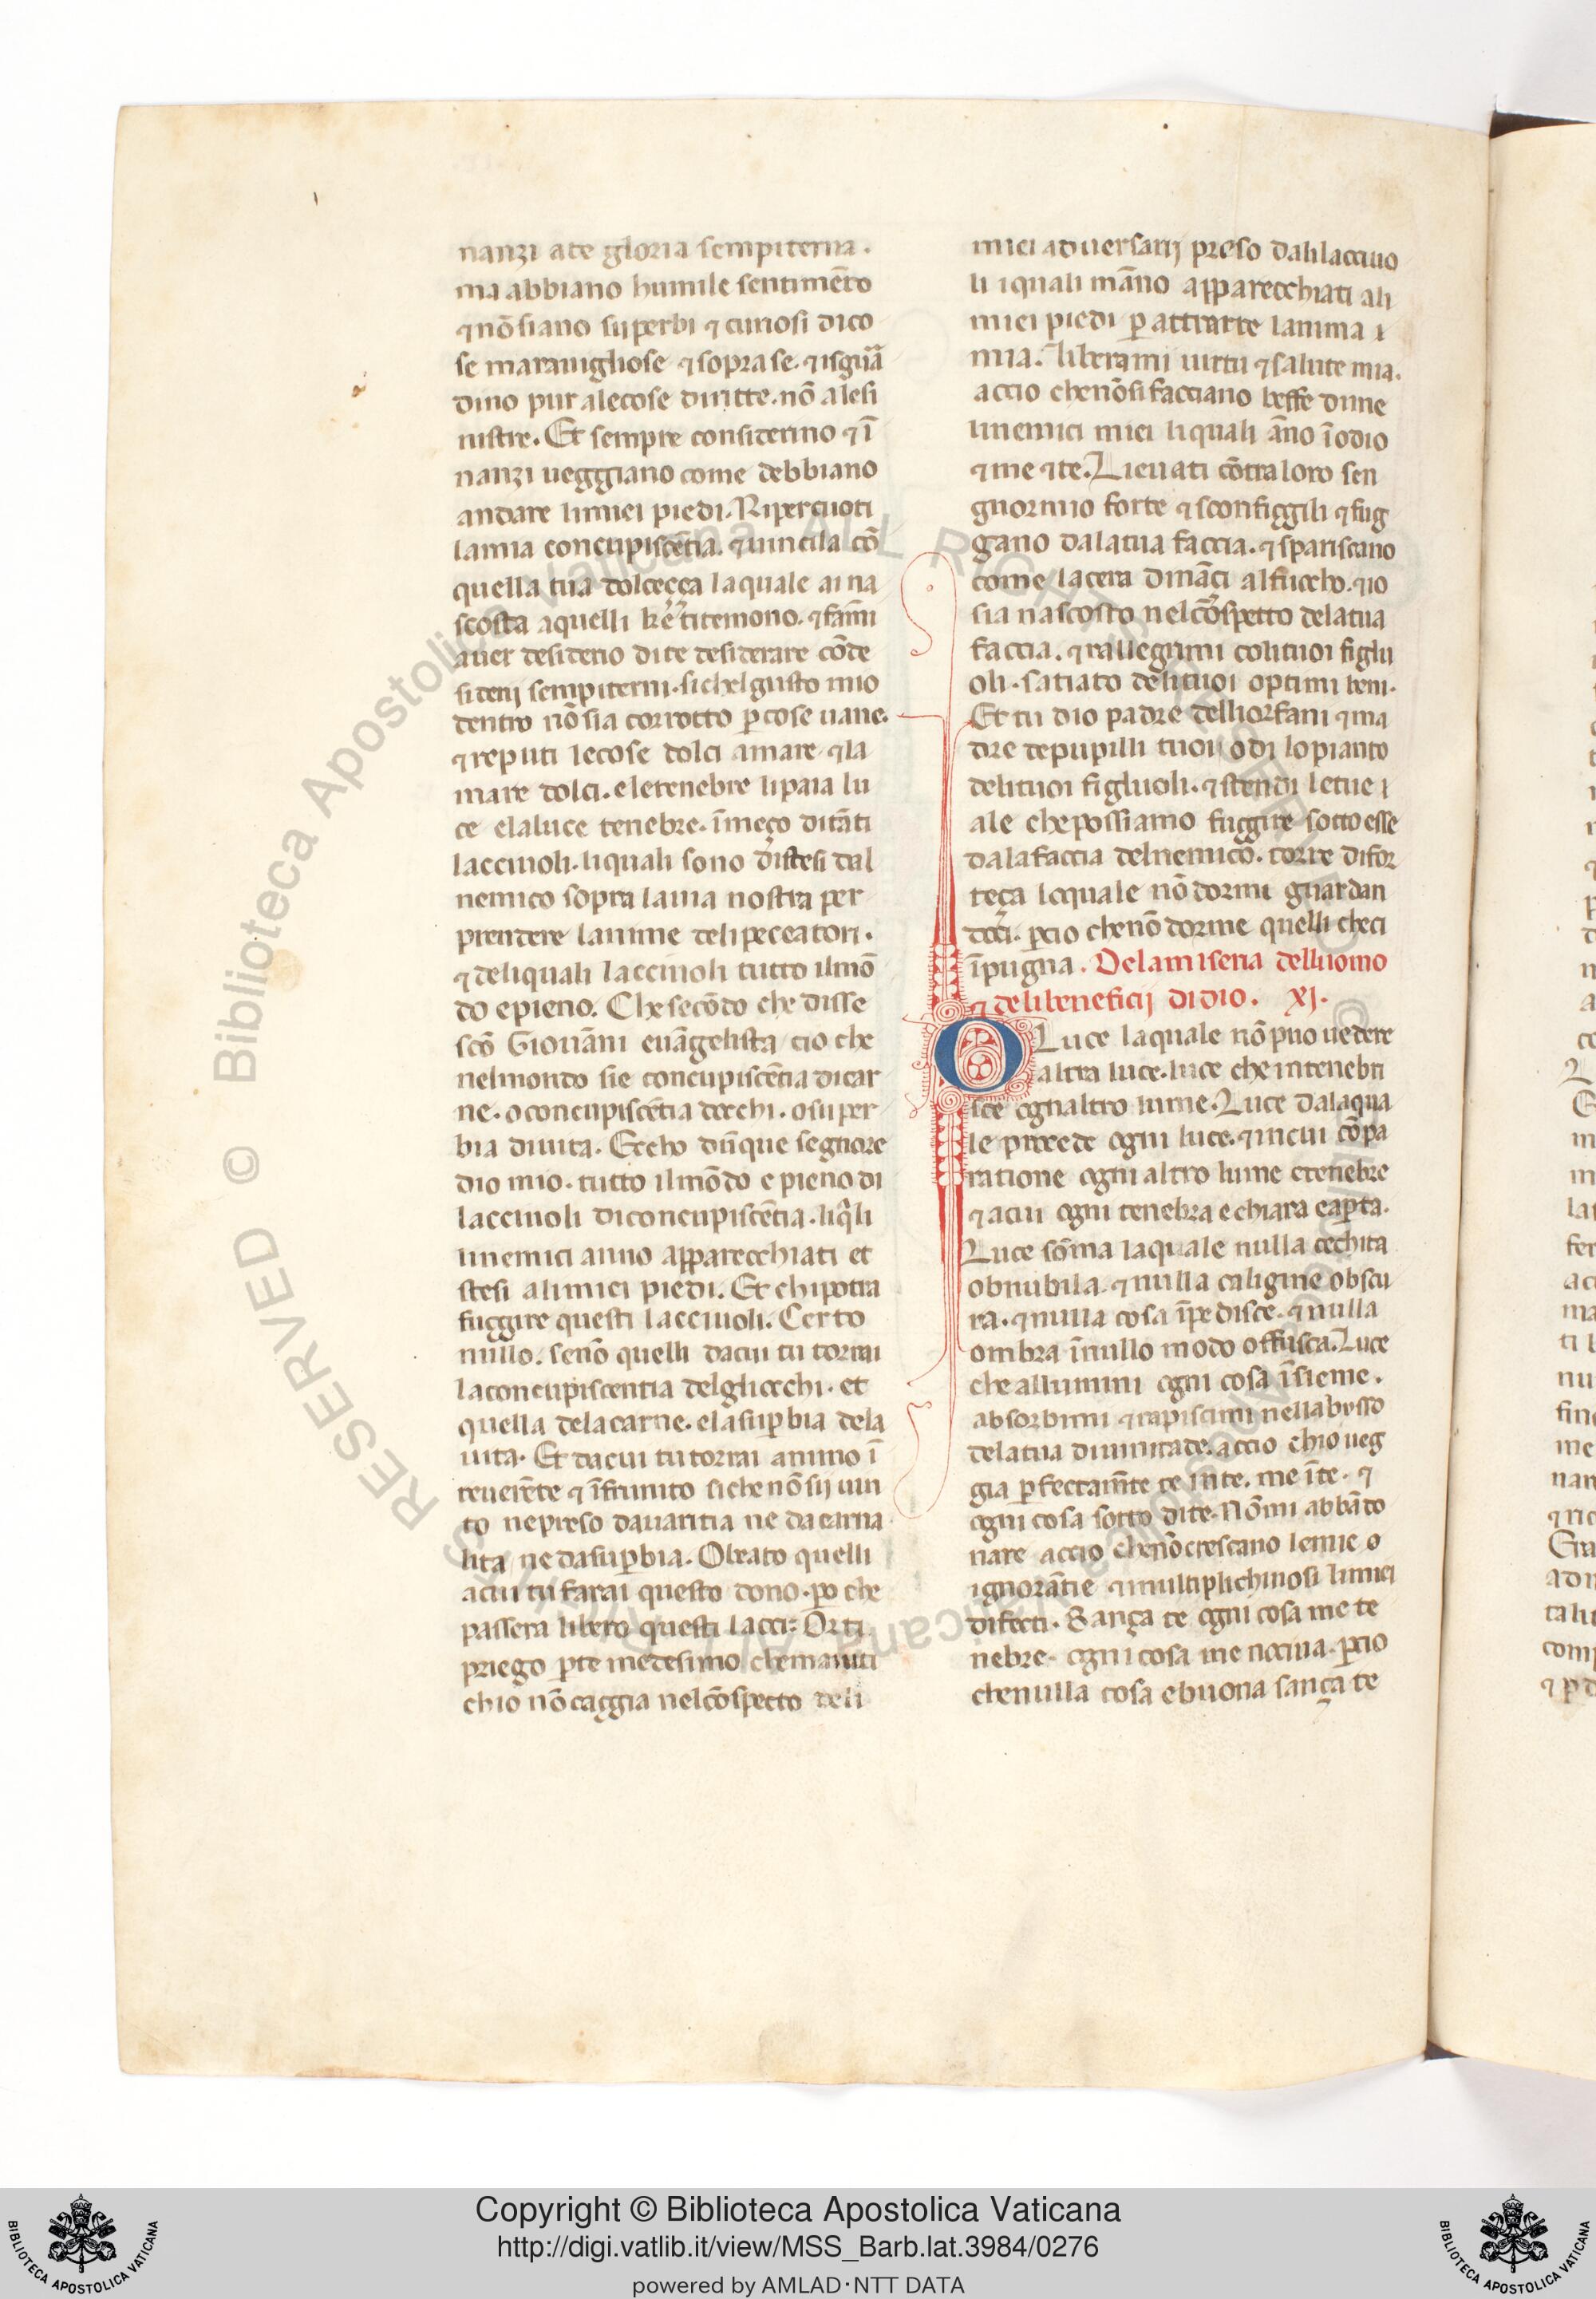 nanzi ate gloria sempiterna.
ma abbiano humile sentimẽto
⁊ nõ siano superbi ⁊ curiosi di co
se marauigliose ⁊ sopra se. ⁊ isguã
dino pur alecose diritte. nõ alesi
nistre. Et sempre considerino ⁊ ĩ
nanzi ueggiano come debbiano
andare limiei piedi. Ripercuoti
lamia concupiscẽtia. ⁊ uincila cõ
quella tua dolceçça laquale ai na
scosta aquelli ke titemono. ⁊ fãmi
auer desiderio dite desiderare cõ de
siderij sempiterni. sichel gusto mio
dentro nõ sia corrotto ꝑ cose uane.
⁊ reputi lecose dolci amare ⁊ la
mare dolci. eletenebre lipaia lu
ce elaluce tenebre. ĩmeço ditãti
lacciuoli. liquali sono distesi dal
nemico sopra lauia nostra per
prendere lanime deli peccatori.
⁊ deliquali lacciuoli tutto ilmõ
do epieno. Che secõdo che disse
scõ Giouãni euãgelista cio che
nelmondo sie concupiscẽtia dicar
ne. o concupiscẽtia docchi. o super
bia diuita. Eccho dũque segnore
dio mio. tutto ilmõdo e pieno di
lacciuoli di concupiscẽtia. liq̃li
linemici anno apparecchiati et
stesi alimiei piedi. Et chi potra
fuggire questi lacciuoli. Certo
nullo. senõ quelli dacui tu torrai
laconcupiscentia delgliocchi. et
quella dela carne. ela suꝑbia dela
uita. Et dacui tu torrai animo ĩ
reuerẽte ⁊ ĩfrunito siche nõ sij uin
to ne preso dauaritia ne da carna
lita ne dasuꝑbia. O beato quelli
acui tu farai questo dono. ꝑo che
passera libero questi lacci. Or ti
priego ꝑ te medesimo che maiuti
chio nõ caggia nelcõspetto deli
miei aduersarij preso dali lacciuo
li iquali mãno apparecchiati ali
miei piedi ꝑ attrarre lanima
mia. liberami uirtu ⁊ salute mia.
accio che nõ si facciano beffe dime
linemici miei liquali ãno ĩodio
⁊ me ⁊ te. Lieuati cõtra loro sen
gnormio forte ⁊ sconfiggili ⁊ fug
gano dalatua faccia. ⁊ spariscano
come la cera dinãci alfuocho. ⁊ io
sia nascosto nelcõspetto delatua
faccia. ⁊ rallegrimi colituoi figlu
oli. satiato delituoi optimi beni.
Et tu dio padre delliorfani ⁊ ma
dre depupilli tuoi odi lopianto
delituoi figluoli. ⁊ stendi letue
ale chepossiamo fuggire sotto esse
dalafaccia delnemico. torre difor
teça loquale nõ dormi guardan
doci. ꝑcio chenõ dorme quelli checi
ĩpugna. Delamiseria delluomo
⁊ delibeneficij didio. XJ.
O Luce laquale nõ puo uedere
altra luce. luce che intenebri
sce ognaltro lume. Luce dalaqua
le procede ogni luce. ⁊ incui cõpa
ratione ogni altro lume etenebre
⁊ acui ogni tenebra e chiara eaꝑta.
Luce sõma laquale nulla cechita
obnubila. ⁊ nulla caligine obscu
ra. ⁊ nulla cosa ĩpedisce. ⁊ nulla
ombra ĩnullo modo offusca. Luce
che allumini ogni cosa ĩsieme.
absorbimi ⁊ rapiscimi nellabysso
delatua diuinitade. accio chio ueg
gia ꝑfectamẽte te inte. me ĩte. ⁊
ogni cosa sotto dite. Nõmi abbãdo
nare accio chenõ crescano lemie
ignorãtie ⁊ multiplichinosi limiei
difecti. Sança te ogni cosa me te
nebre. ogni cosa me nociua. ꝑcio
chenulla cosa ebuona sança te
Copyright © Biblioteca Apostolica Vaticana
http://digi.vatlib.it/view/MSS_Barb.lat.3984/0276
powered by AMLAD·NTT DATA
BIBLIOTECA APOSTOLICA VATICANA
BIBLIOTECA APOSTOLICA VATICANA